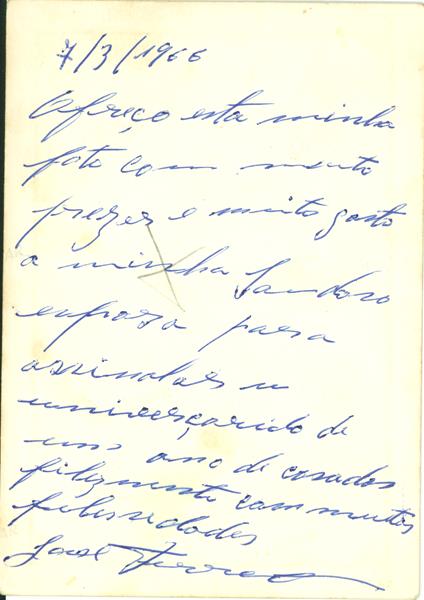 7/3/1966
Ofreço esta minha
foto com muito
prezer e muito gosto
a minha
esposa para
assinalar u
univerçarido de
um ano de casados
filizmente com muitas
felisidades
José